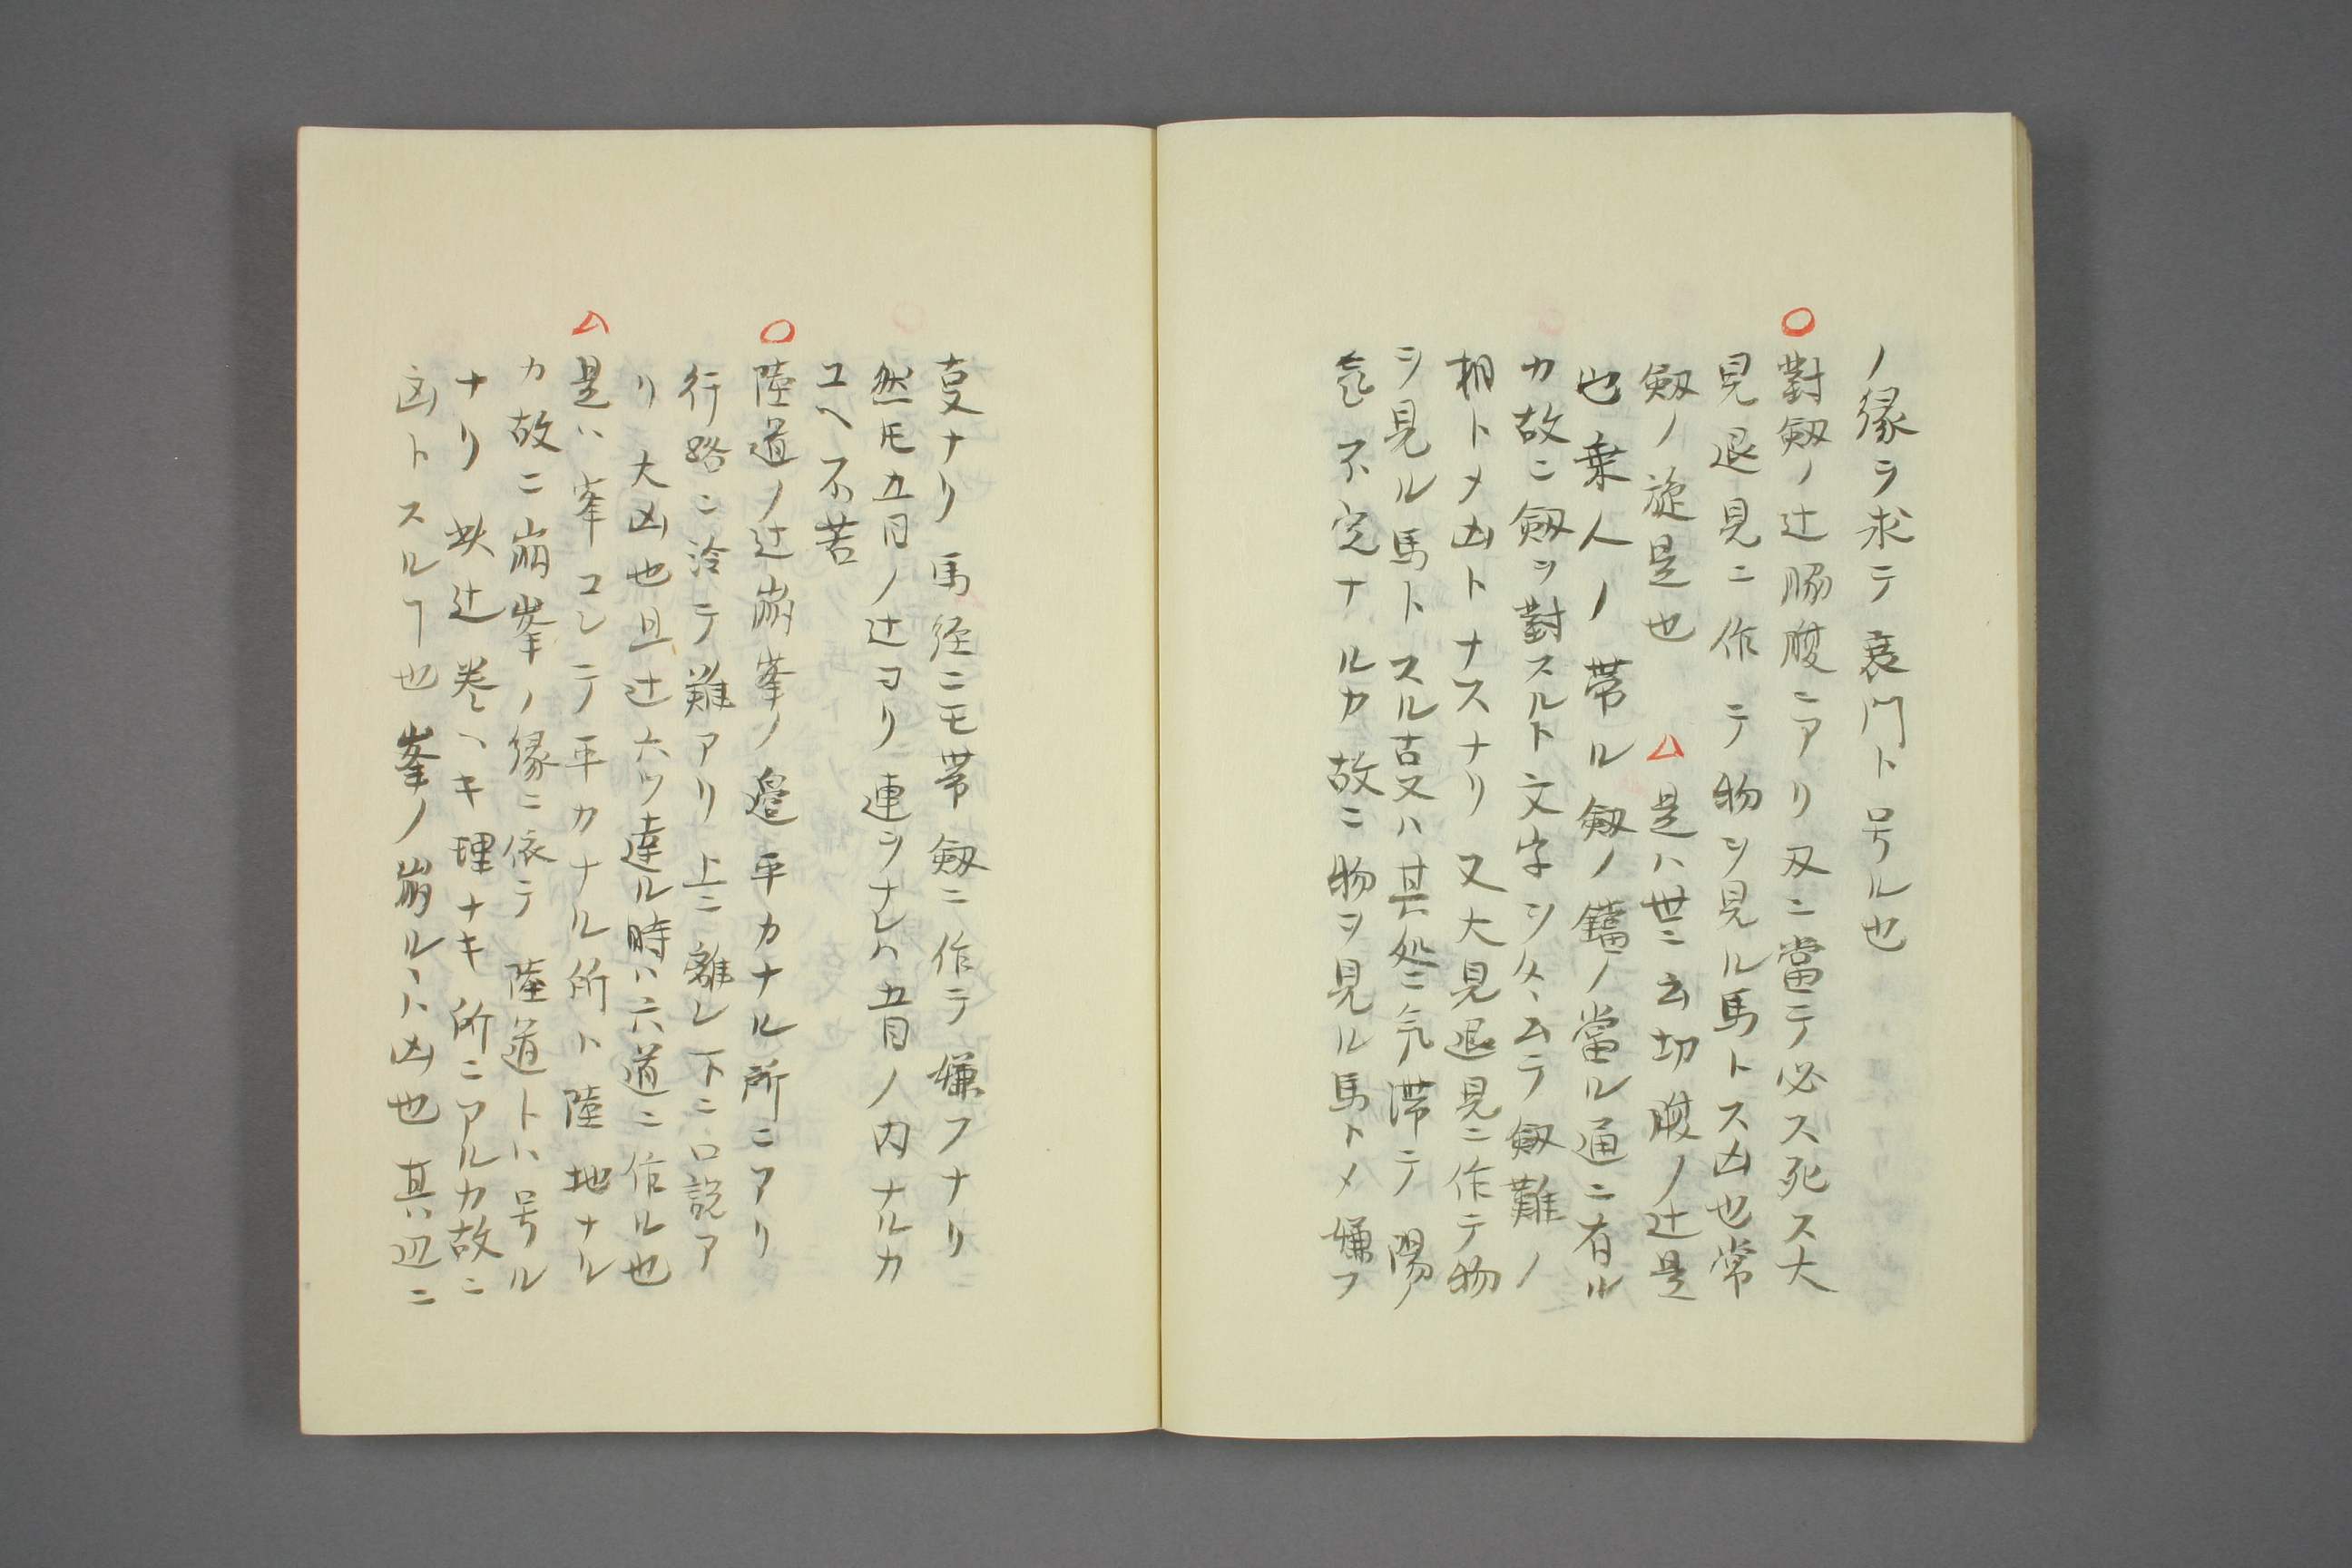 ノ縁ヲ求テ衰門ト号ル也
○對劔ノ辻豚腹ニアリ刄ニ當テ必ス死ス大
見退見ニ作テ物ヲ見ル馬トス凶也常
劔ノ旋是也 △是ハ世ニ云切腹ノ辻是
也乗人ノ帯ル劔ノ鐺ノ當ル通ニ有ル
カ故ニ劔ヲ對スルト文字ヲ久ムテ劔難ノ
相トメ凶トナスナリ又大見退見ニ作テ物
ヲ見ル馬トスル古叓ハ其処ニ気滞テ陽
気不定ナルカ故ニ物ヲ見ル馬トメ嫌フ
叓ナリ馬径ニモ帯劔ニ作テ嫌フナリ
然𪜈五目ノ辻ヨリ連ラナレハ五目ノ内ナルカ
ユヘ不苦
○陸道ノ辻崩峯ノ邉平カナル所ニアリ
行路ニ泠テ難アリ上ニ離レ下ニ口説ア
リ大凶也且辻六ツ達ル時ハ六道ニ作ル也
△是ハ峯コシテ平カナル所ハ陸地ナル
カ故ニ崩峯ノ縁ニ依テ陸道トハ号ル
ナリ 此辻巻ヘキ理ナキ所ニアルカ故ニ
凶トスルヿ也峯ノ崩ルヽト凶也其ハ辺ニ